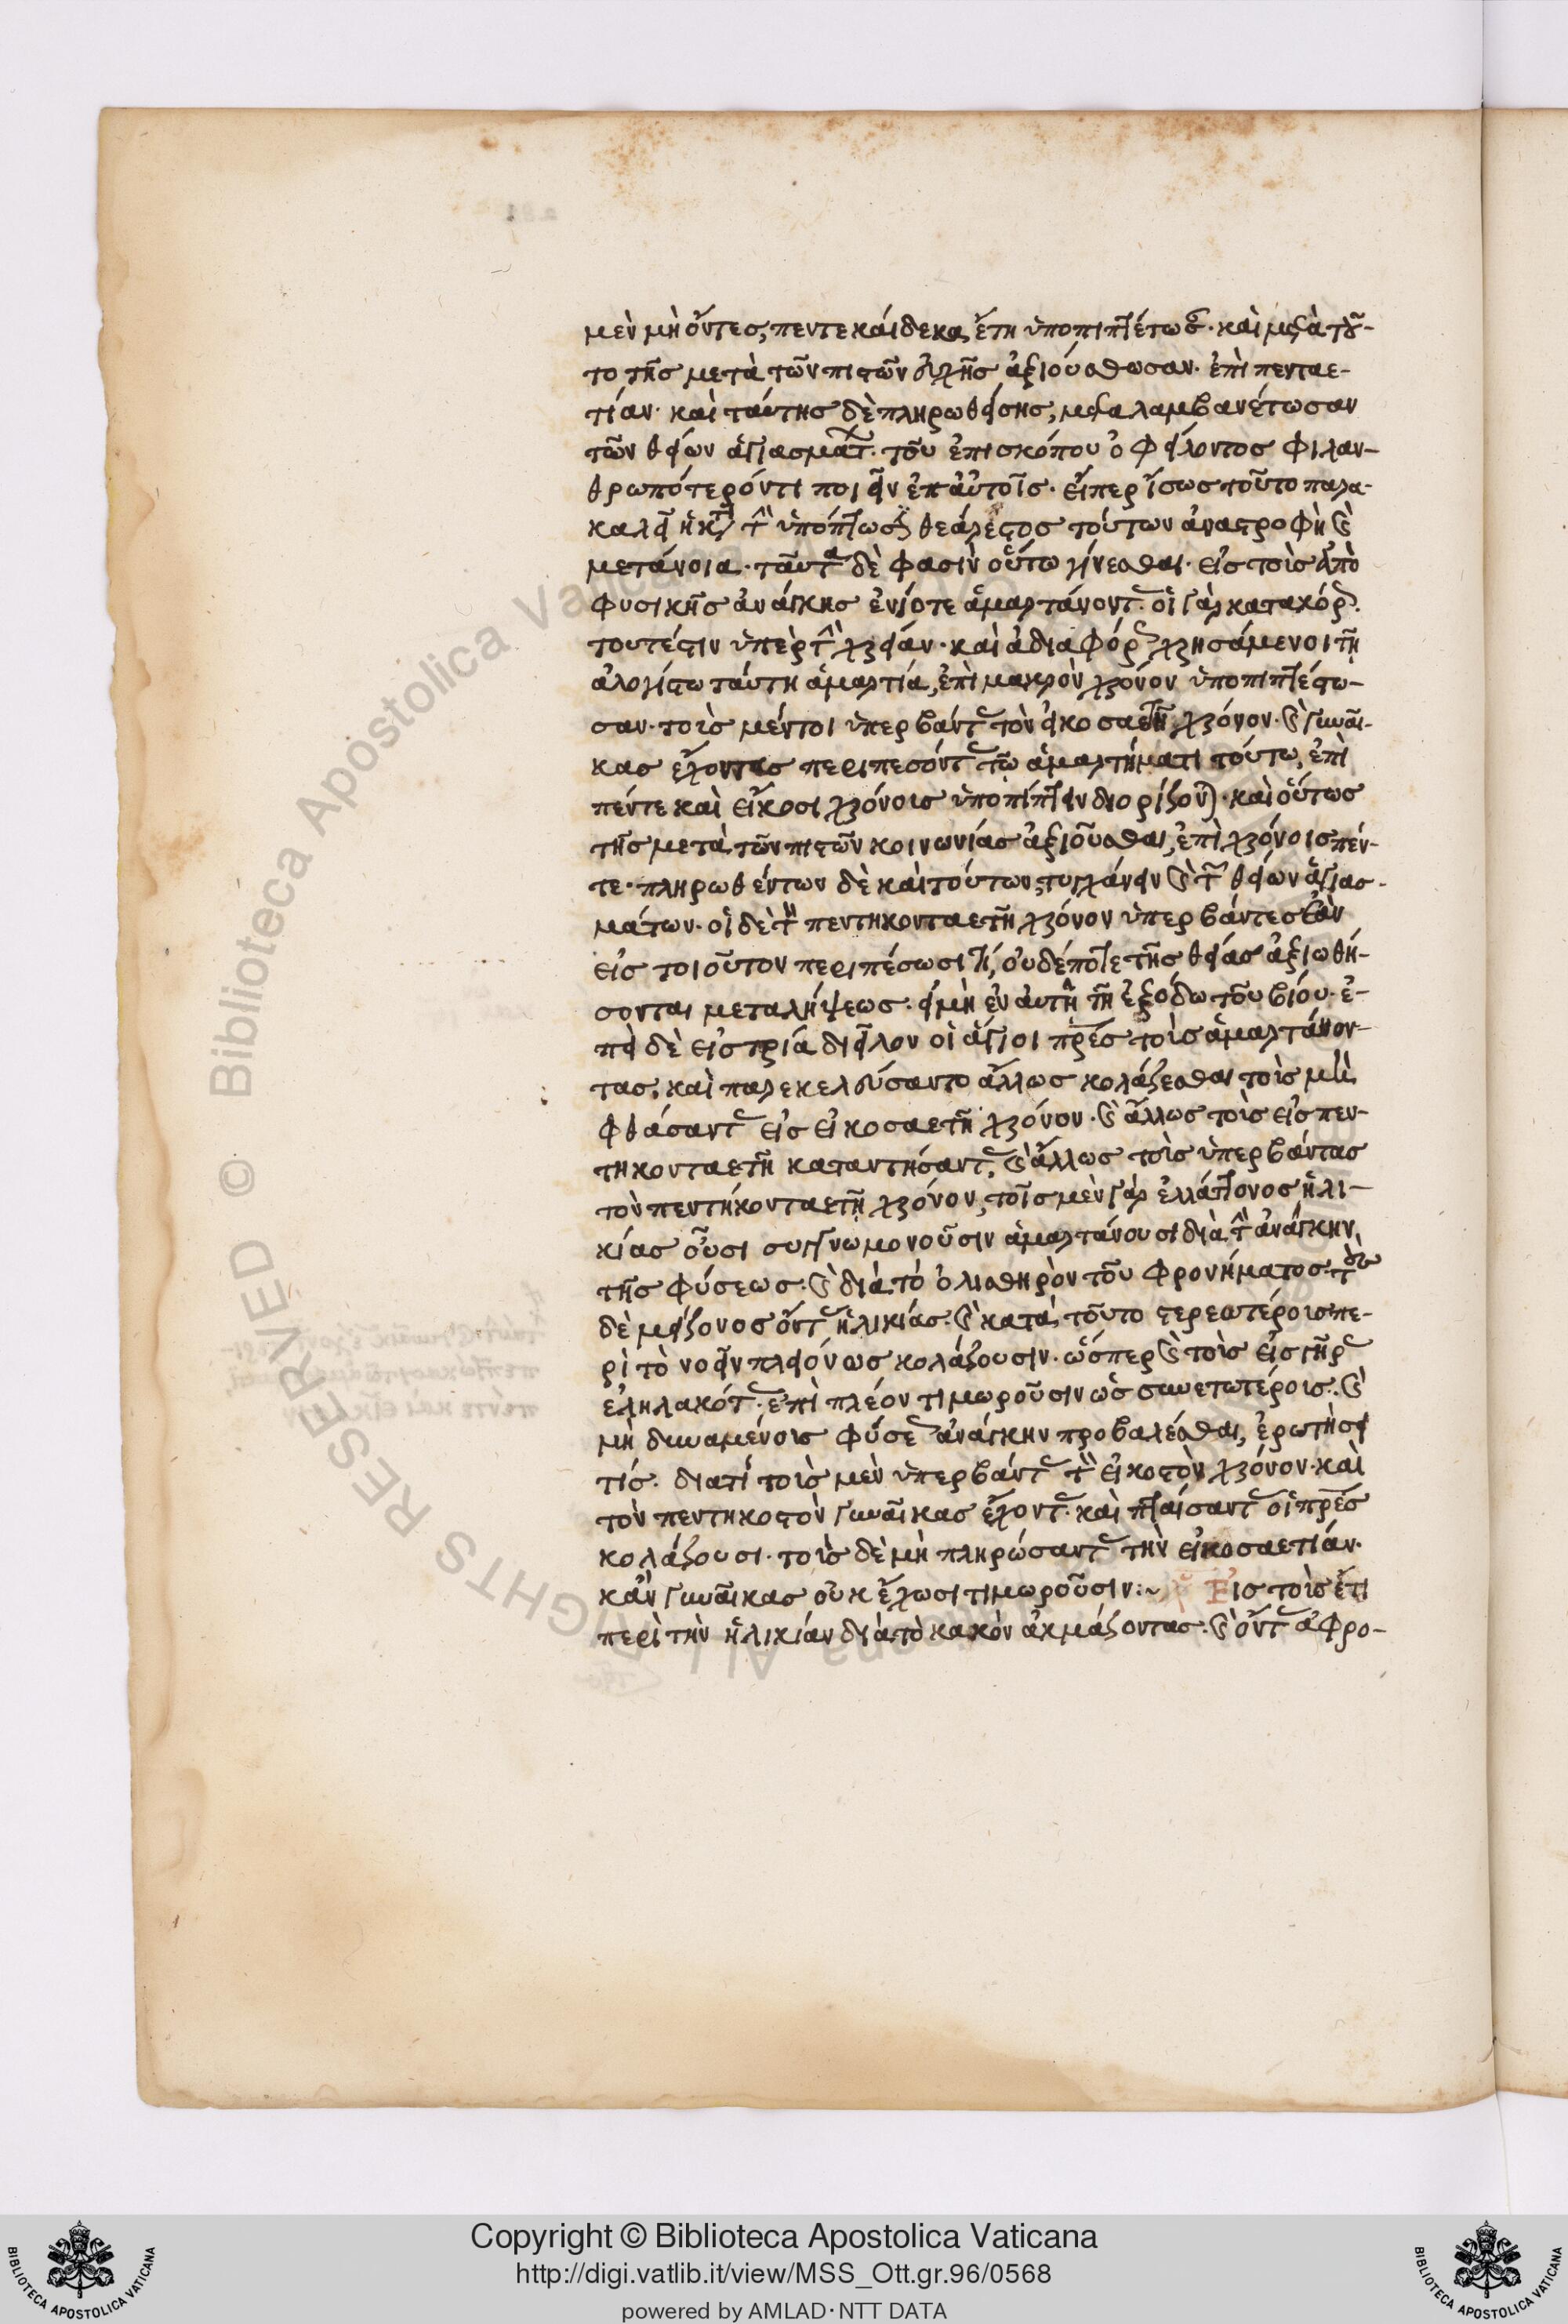 μὲν μὴ ὄντες, πεντεκαίδεκα ἔτη ὑποπιπτέτωσ. καὶ μετὰ τοῦ-
το τῆς μετὰ τῶν πιστῶν εὐχῆς ἀξιούσθωσαν. ἐπὶ πενταε-
τίαν. καὶ ταύτης δὲ πληρωθείσης, μεταλαμβανέτωσαν
τῶν θείων ἁγιασμάτ. τοῦ ἐπισκόπου ὀφείλοντος φιλαν-
θρωπότερόν τι ποιεῖν ἐπ αὐτοῖς. εἴπερ ἴσως τοῦτο παρα-
καλεῖ ἡ τὴν ὑπόπτωσ θεάρεστος τούτων ἀναστροφὴ καὶ
μετάνοια. ταῦτα δὲ φασὶν οὕτω γίνεσθαι. εἰς τοὺς ἀπὸ
φυσικῆς ἀνάγκης ἐνίοτε ἁμαρτάνοντ. οἱ γὰρ κατακόρ.
τουτέστιν ὑπὲρ τὴν χρείαν. καὶ ἀδιαφόρ χρησάμενοι τῇ
ἀλογίστω ταύτη ἁμαρτία, ἐπὶ μακρὸν χρόνον ὑποπιπτέτω-
σαν. τοὺς μέντοι ὑπερβάντ τὸν εἰκοσαετῆ χρόνον. καὶ γυναῖ-
κας ἔχοντας περιπεσόντ τῷ ἁμαρτήματι τούτω, ἐπὶ
πέντε καὶ εἴκοσι χρόνοις ὑποπίπτειν διορίζονται. καὶ οὕτως
τῆς μετὰ τῶν πιστῶν κοινωνίας ἀξιοῦσθαι, ἐπὶ χρόνοις πέν-
τε. πληρωθέντων δὲ καὶ τούτων, τυγχάνειν καὶ τῶν θείων ἁγιασ-
μάτων. οἱ δὲ τὸν πεντηκονταετῆ χρόνον ὑπερβάντες ἐὰν
εἰς τοιοῦτον περιπέσωσί τι, οὐδέποτε τῆς θείας ἀξιωθή-
σονται μεταλήψεως. εἰ μὴ ἐν αὐτῇ τῇ ἐξόδω τοῦ βίου. ἐ-
πεὶ δὲ εἰς τρία διεῖλον οἱ ἅγιοι πρές τοὺς ἁμαρτάνον-
τας, καὶ παρεκελεύσαντο ἄλλως κολάζεσθαι τοὺς μὴ
φθάσαντ εἰς εἰκοσαετῆ χρόνον. καὶ ἄλλως τοὺς εἰς πεν-
τηκονταετῆ καταντήσαντ, καὶ ἄλλως τοὺς ὑπερβάντας
τὸν πεντηκονταετῆ χρόνον, τοῖς μὲν γὰρ ἐλάττονος ἡλι-
κίας οὖσι συγγνωμονοῦσιν ἁμαρτάνουσι διὰ τὴν ἀνάγκην
τῆς φύσεως. καὶ διὰ τὸ ὀλισθηρὸν τοῦ φρονήματος. τοὺς
δὲ μείζονος ὄντ ἡλικίας. καὶ κατὰ τοῦτο στερεωτέροις πε-
ρὶ τὸ νοεῖν πλειόνως κολάζουσιν. ὥσπερ καὶ τοὺς εἰς γῆρ
ἐληλακότ. ἐπὶ πλέον τιμωροῦσιν ὡς συνετωτέροις. καὶ
μὴ δυναμένοις φύσε ἀνάγκην προβαλέσθαι, ἐρωτήσει
τίς. διατί τοὺς μὲν ὑπερβάντ τὸν εἰκοστὸν χρόνον. καὶ
τὸν πεντηκοστὸν γυναῖκας ἔχοντ. καὶ πταίσαντ οἱ πρές
κολάζουσι. τοὺς δὲ μὴ πληρώσαντ τὴν εἰκοσαετίαν.
κἂν γυναῖκας οὐκ ἔχωσι τιμωροῦσιν:~ Εἰς τοὺς ἔτι
περὶ τὴν ἡλικίαν διὰ τὸ κακὸν ἀκμάζοντας. καὶ ὄντ ἀφρο-
Biblioteca Apostolica Vaticana
ALL RIGHTS RESERVED ©
Copyright © Biblioteca Apostolica Vaticana
http://digi.vatlib.it/view/MSS_Ott.gr.96/0568
powered by AMLAD·NTT DATA
BIBLIOTECA APOSTOLICA VATICANA
BIBLIOTECA APOSTOLICA VATICANA